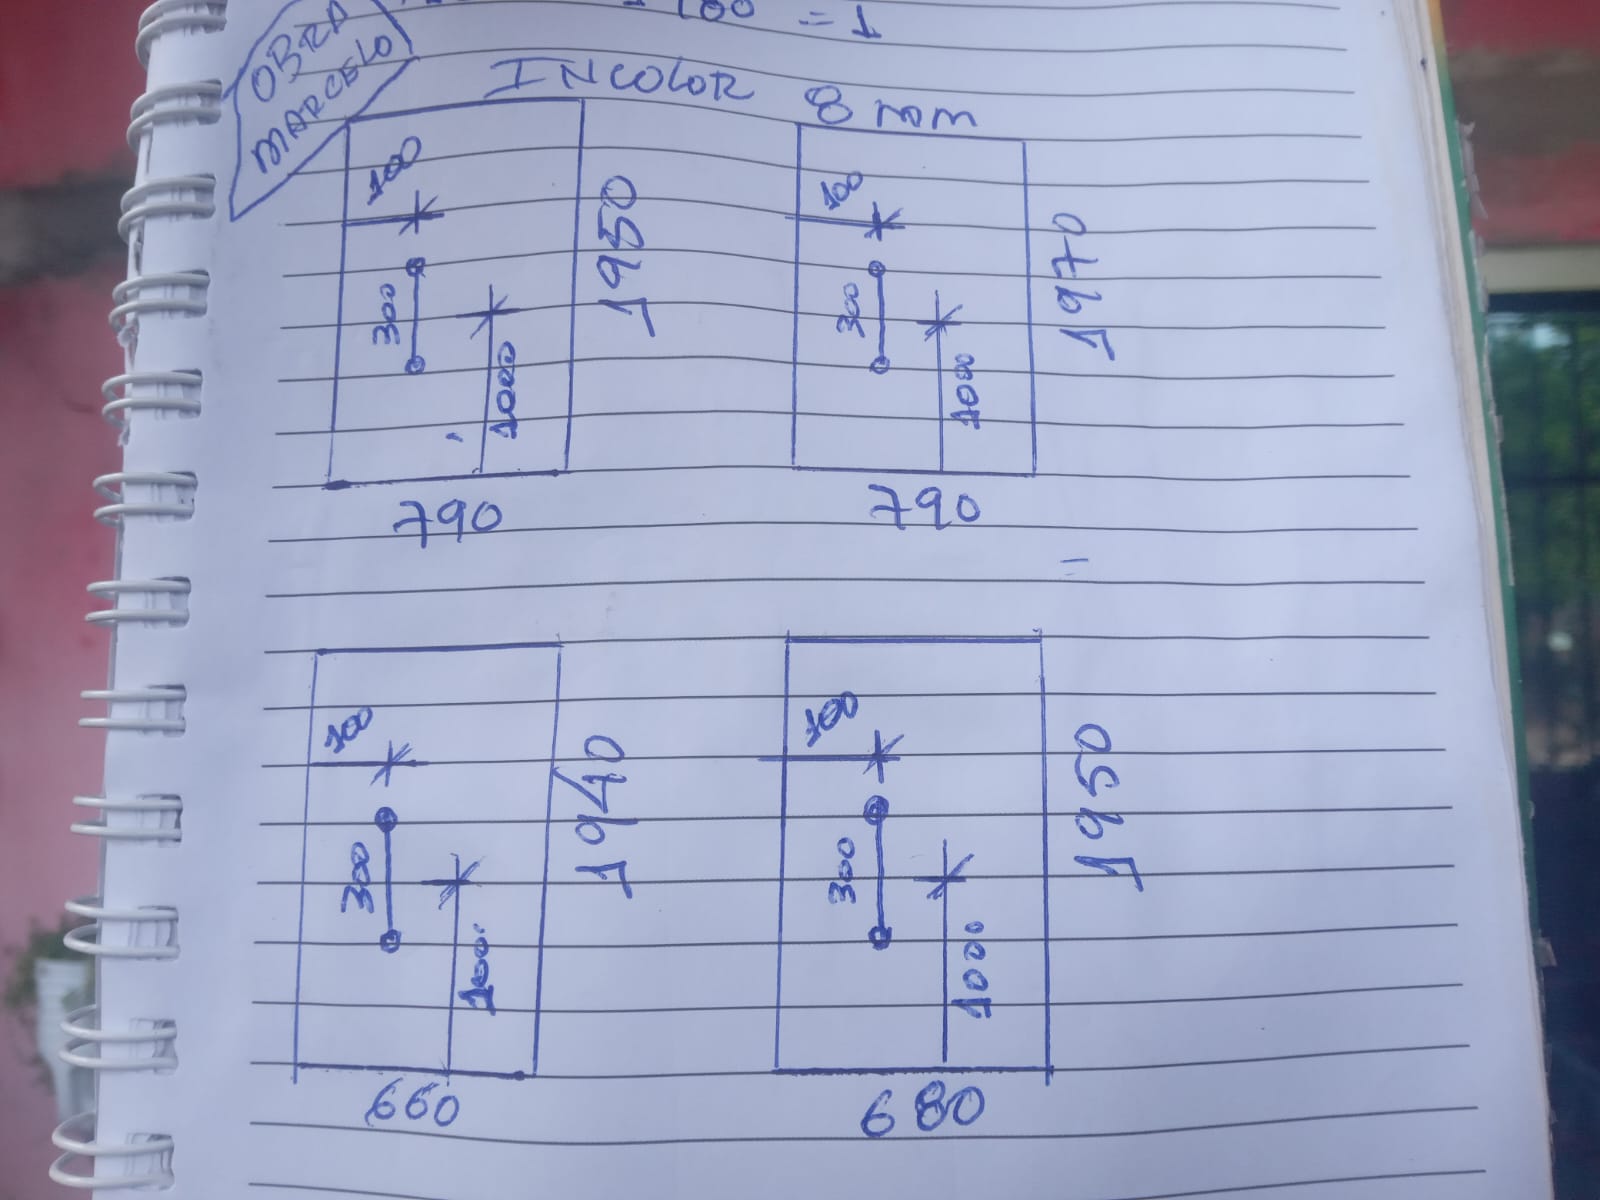 100 = 1
OBRA
MARCELO
INCOLOR 8 mm
100
300
1000
1950
790
100
300
1000
1970
790
100
300
1000
1940
660
100
300
1000
1950
680